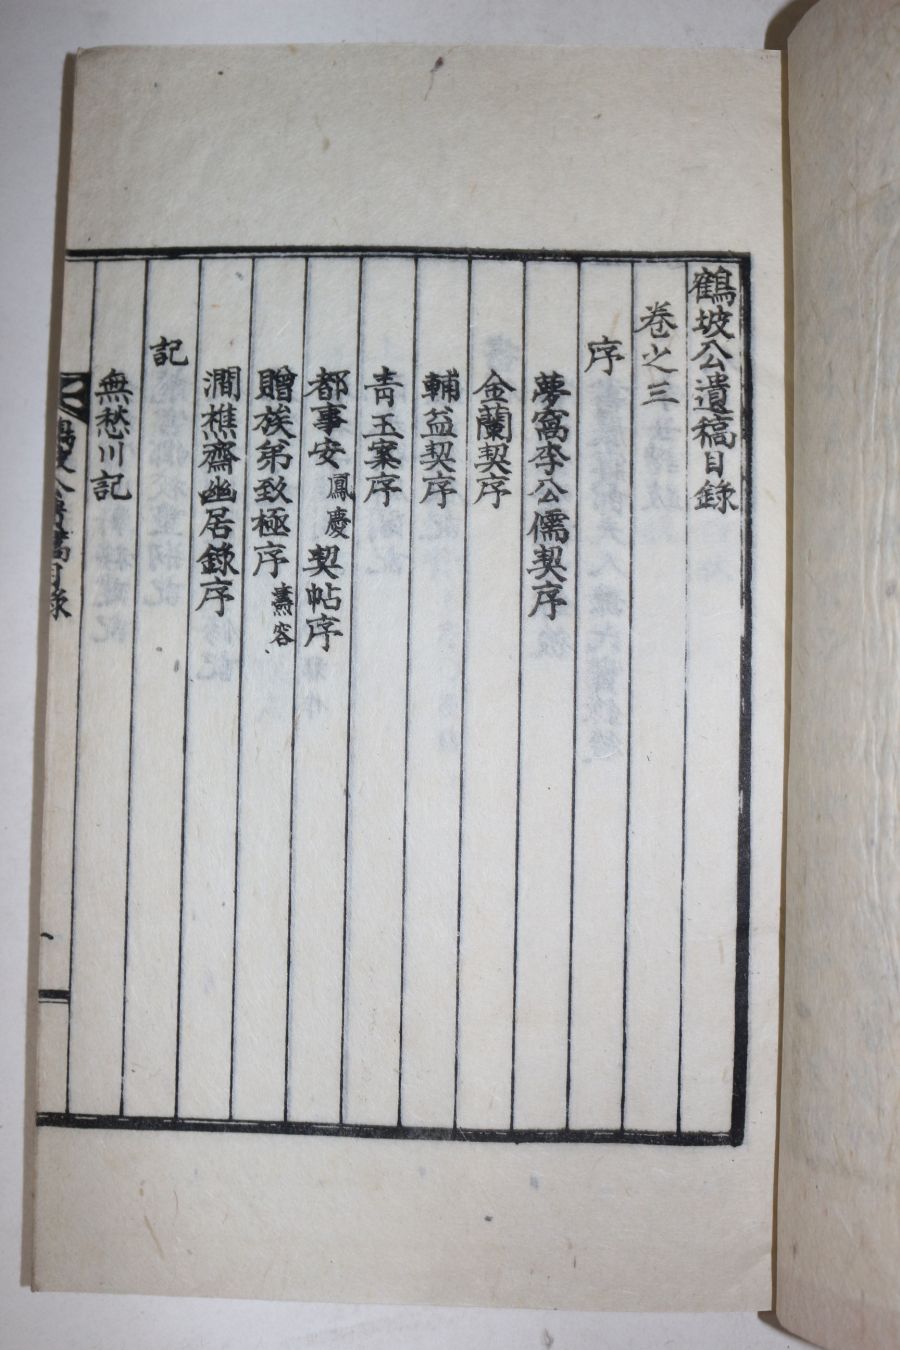 鶴坡公遺稿目錄
卷之三
序
夢窩李公儒契序
金蘭契序
輔益契序
靑玉案序
都事安鳳慶契帖序
贈族弟致極序 燾容
澗樵齋幽居錄序
記
無愁川記
鶴坡公遺稿目錄
一